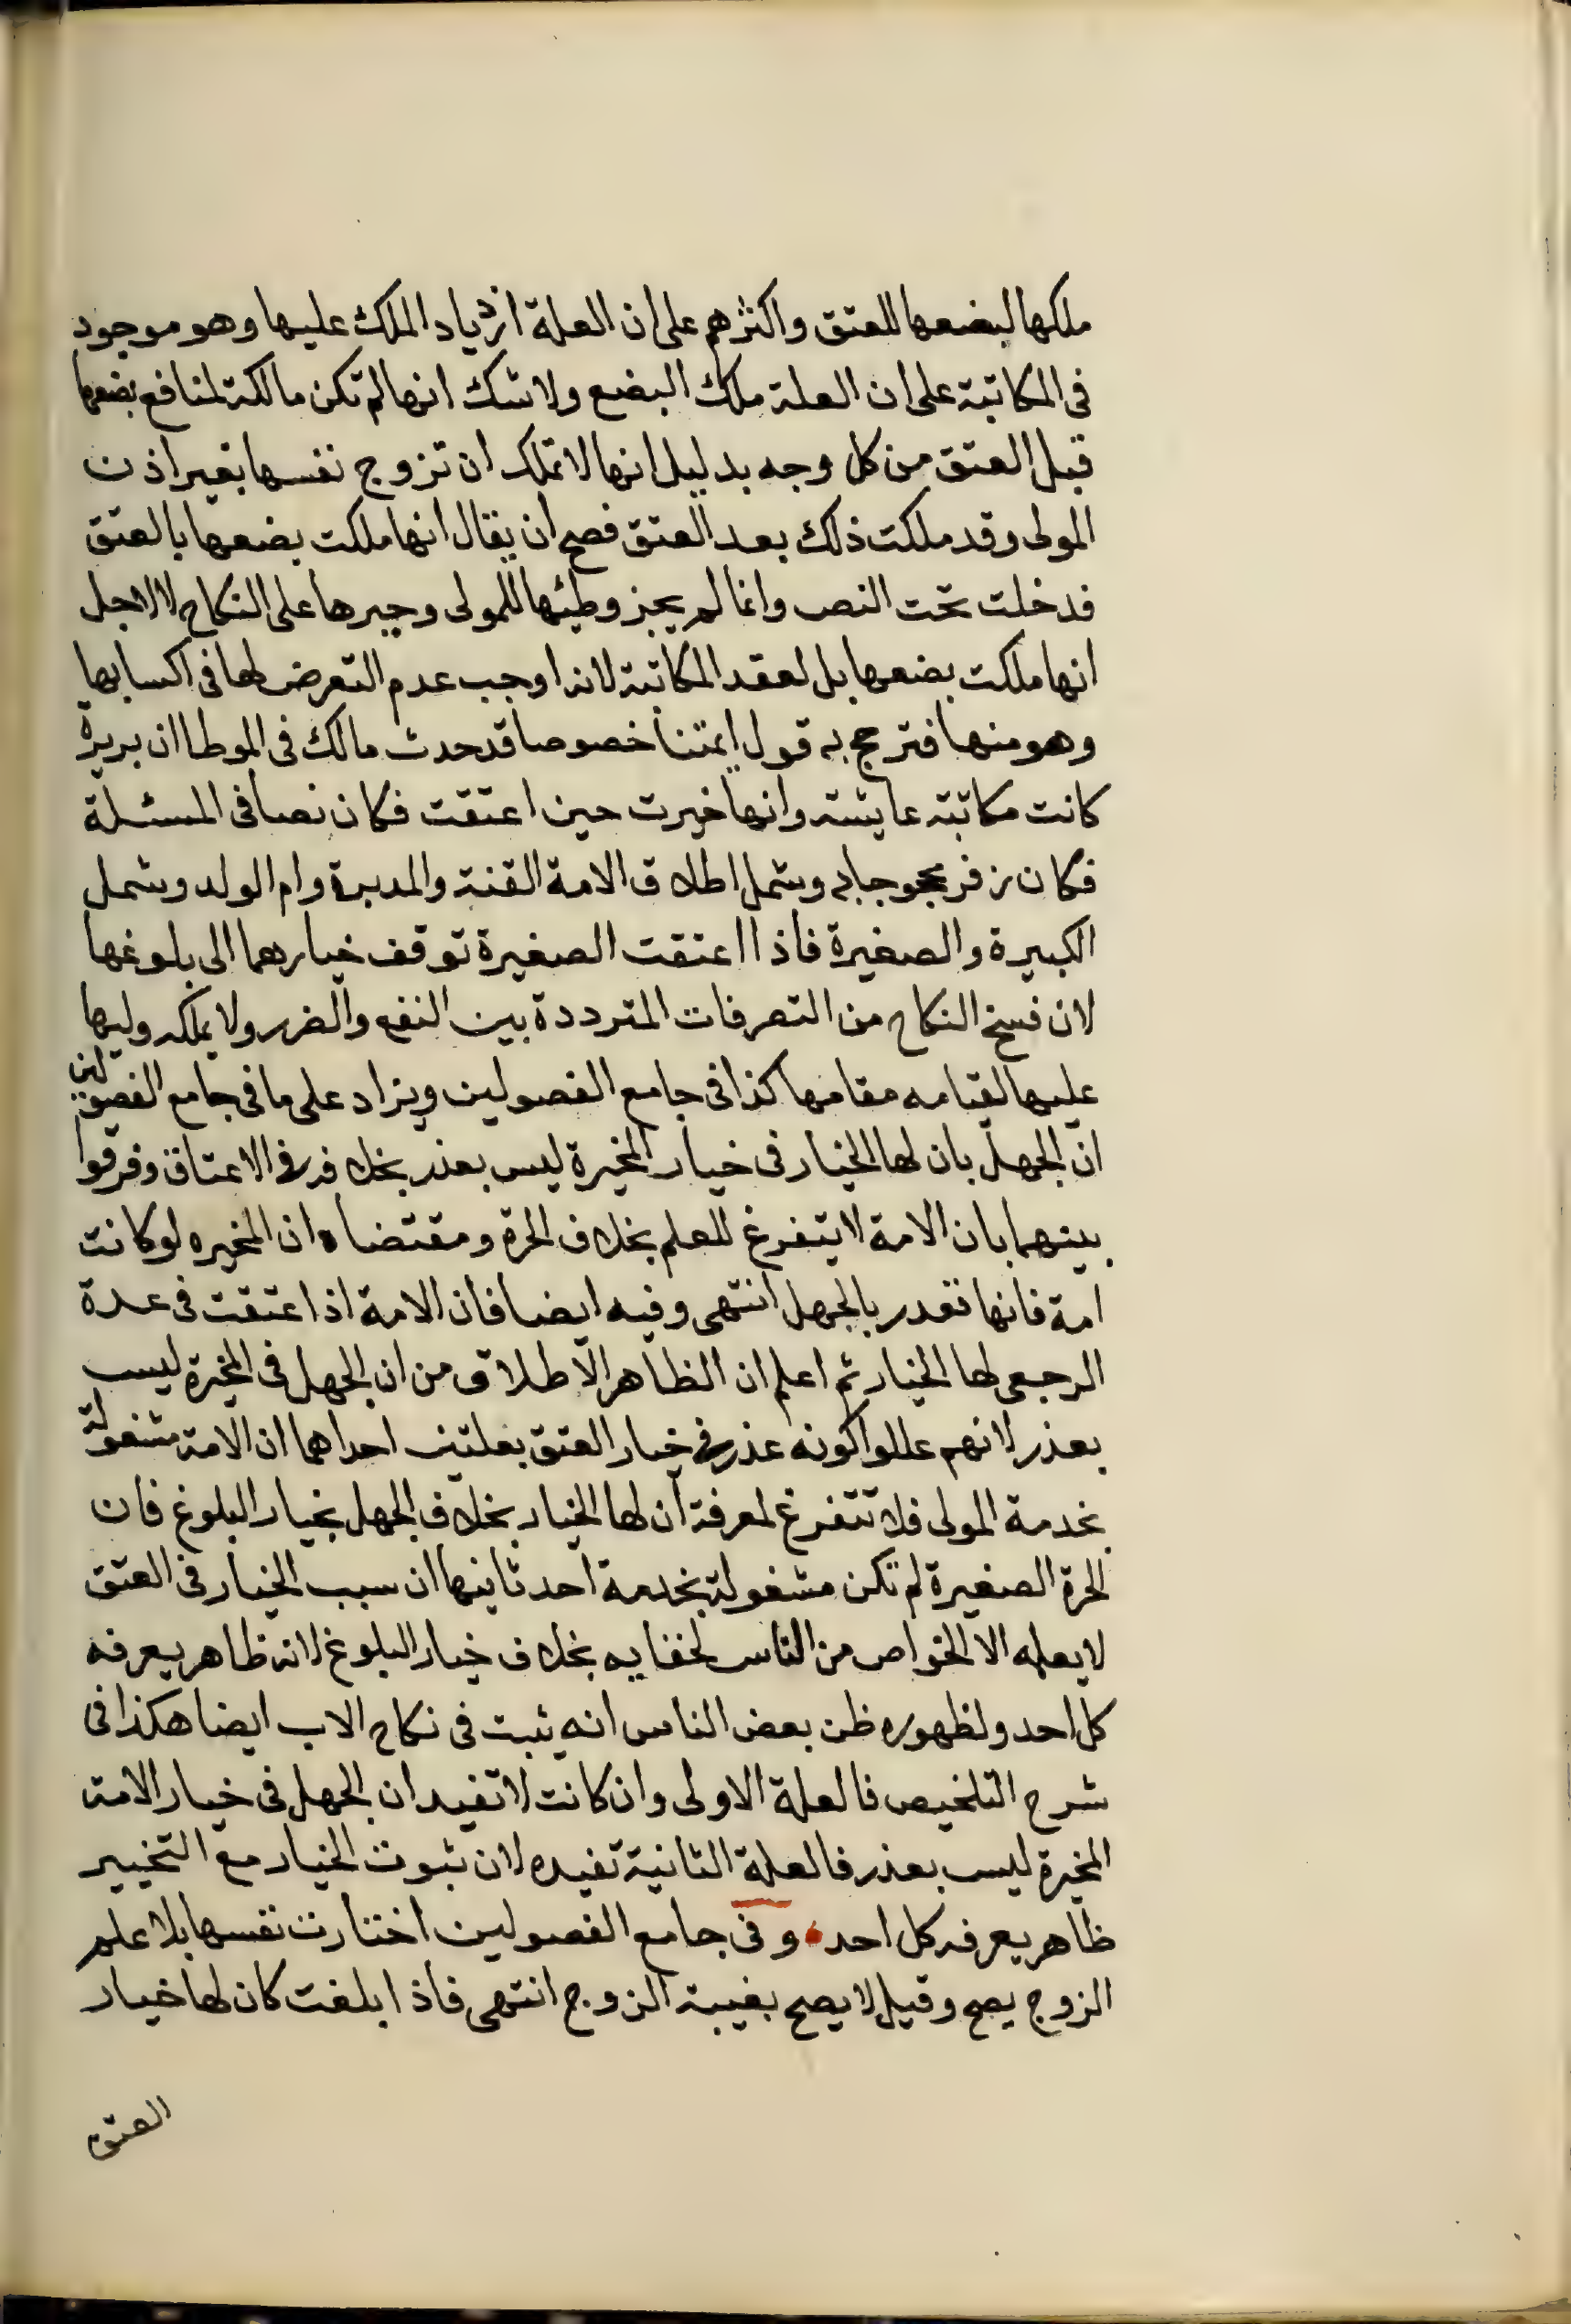 ملكها لبضعها للعتق واكثرهم على ان العلة ازدياد الملك عليها وهو موجود
فى المكاتبة على ان العلة ملك البضع ولا شك انها لم تكن مالكة لمنافع بضعها
قبل العتق من كل وجه بدليل انها لا تملك ان تزوج نفسها بغير اذن
المولى وقد ملكت ذلك بعد العتق فصح ان يقال انها ملكت بضعها بالعتق
فدخلت تحت النص وانما لم يجز وطئها للمولى وجبرها على النكاح لا لاجل
انها ملكت بضعها بل لعقد المكاتبة لانه اوجب عدم التعرض لها فى اكسابها
وهو منها فترجح به قول ايمتنا خصوصا قد حدث مالك فى الموطا ان بريرة
كانت مكاتبة عايشة وانها خيرت حين اعتقت فكان نصا فى المسئلة
فكان زفر محجوجا به وشمل اطلاق الامة القنة والمدبرة وام الولد وشمل
الكبيرة والصغيرة فاذا اعتقت الصغيرة توقف خيارهما الى بلوغها
لان فسخ النكاح من التصرفات المترددة بين النفع والضرر ولا يملكه وليها
عليها لقيامه مقامها كذا فى جامع الفصولين ويزاد على ما فى جامع الفصولين
ان الجهل بان لها الخيار فى خيار المخيرة ليس بعذر بخلافه فى الاعتاق وفرقوا
بينهما بان الامة لا يتفرغ للعلم بخلاف الحرة ومقتضاه ان المخيره لو كانت
امة فانها تعذر بالجهل انتهى وفيه ايضا فان الامة اذا عتقت فى عدة
الرجعى لها الخيار ثم اعلم ان الظاهر الاطلاق من ان الجهل فى المخيرة ليس
بعذر لانهم عللوا كونه عذرا فى خيار العتق بعلتين احداهما ان الامة مشغولة
بخدمة المولى فلا تتفرغ لمعرفة ان لها الخيار بخلاف الجهل بخيار البلوغ فان
الحرة الصغيرة لم تكن مشغولة بخدمة احد ثانيها ان سبب الخيار فى العتق
لا يعلمه الا الخواص من الناس لخفايه بخلاف خيار البلوغ لانه ظاهر يعرفه
كل احد ولظهوره ظن بعض الناس انه يثبت فى نكاح الاب ايضا هكذا فى
شرح التلخيص فالعلة الاولى وان كانت لا تفيد ان الجهل فى خيار الامة
المخيرة ليس بعذر فالعلة الثانية تفيده لان ثبوت الخيار مع التخيير
ظاهر يعرفه كل احد وفى جامع الفصولين اختارت نفسها بلا علم
الزوج يصح وقيل لا يصح بغيبة الزوج انتهى فاذا بلغت كان لها خيار
العتق